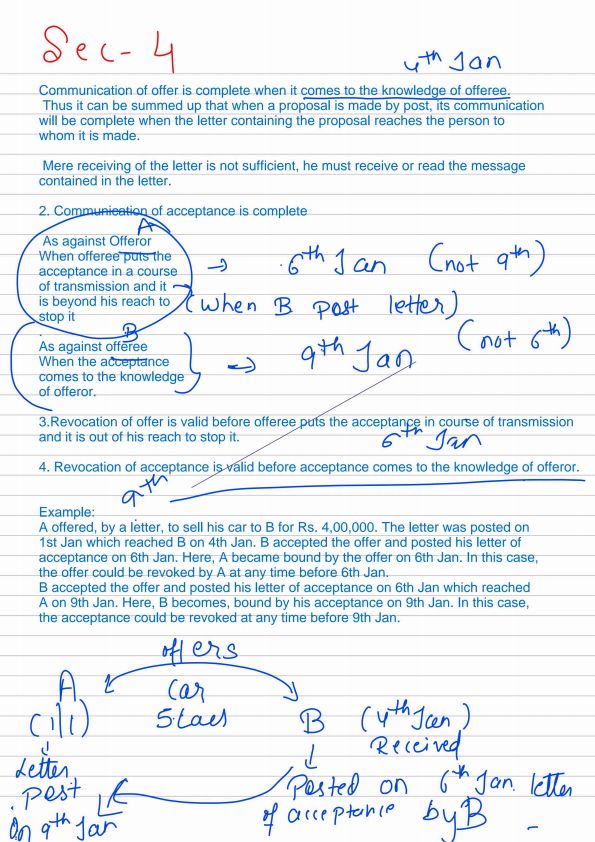 Sec- 4
4th Jan
Communication of offer is complete when it comes to the knowledge of offeree.
Thus it can be summed up that when a proposal is made by post, its communication
will be complete when the letter containing the proposal reaches the person to
whom it is made.
Mere receiving of the letter is not sufficient, he must receive or read the message
contained in the letter.
2. Communication of acceptance is complete
A
As against Offeror
When offeree puts the
acceptance in a course
of transmission and it
is beyond his reach to
stop it
→ 6th Jan (not 9th)
(When B post letter)
B
As against offeree
When the acceptance
comes to the knowledge
of offeror.
→ 9th Jan (not 6th)
3.Revocation of offer is valid before offeree puts the acceptance in course of transmission
and it is out of his reach to stop it.
6th Jan
4. Revocation of acceptance is valid before acceptance comes to the knowledge of offeror.
9th
Example:
A offered, by a letter, to sell his car to B for Rs. 4,00,000. The letter was posted on
1st Jan which reached B on 4th Jan. B accepted the offer and posted his letter of
acceptance on 6th Jan. Here, A became bound by the offer on 6th Jan. In this case,
the offer could be revoked by A at any time before 6th Jan.
B accepted the offer and posted his letter of acceptance on 6th Jan which reached
A on 9th Jan. Here, B becomes, bound by his acceptance on 9th Jan. In this case,
the acceptance could be revoked at any time before 9th Jan.
offers
A Car
(1/1) 5 Lacs B (4th Jan)
Received
Letter
Post
On 9th Jan
Posted on 6th Jan letter
of acceptance by B